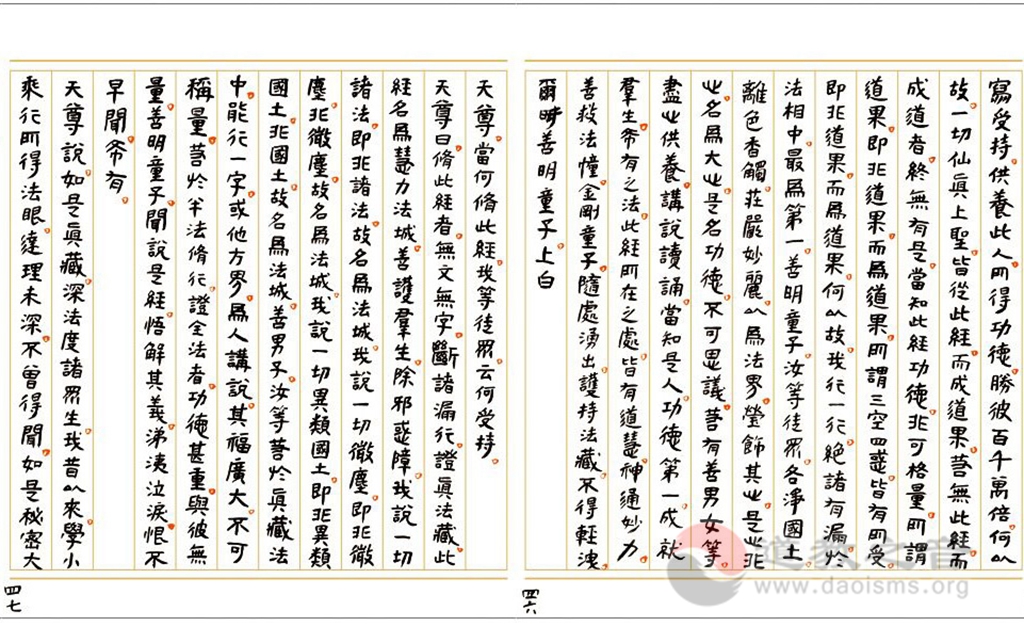 寫受持。供養此人。所得功德。勝彼百千萬倍。何以
故。一切仙眞上聖。皆從此經。而成道果。若無此經。而
成道者。終無有是。當知此經功德。非可格量。所謂
道果。即非道果。而爲道果。所謂三空四惑。皆有所受。
即非道果。而爲道果。何以故。我行一行。絕諸有漏。於
法相中。最爲第一。善明童子。汝等徒眾。各淨國土。
離色香觸。莊嚴妙麗。以爲法界。瑩飾其世。是世非
世。名爲大世。是名功德。不可思議。若有善男女等。
盡世供養。講說讀誦。當知是人。功德第一。成就
羣生。希有之法。此經所在之處。皆有道慧。神通妙力。
善救法憧。金剛童子。隨處湧出。護持法藏。不得輕洩。
爾時善明童子上白
四六
天尊。當何脩此經。我等徒眾。云何受持。
天尊曰。脩此經者。無文無字。斷諸漏行。證眞法藏。此
經名爲慧力法城。善護羣生。除邪惑障。我說一切
諸法。即非諸法。故名爲法城。我說一切微塵。即非微
塵。非微塵。故名爲法城。我說一切異類國土。即非異類
國土。非國土。故名爲法城。善男子。汝等若於眞藏法
中。能行一字。或他方界。爲人講說。其福廣大。不可
稱量。若於半法脩行。證全法者。功德甚重。與彼無
量。善明童子。聞說是經。悟解其義。涕洟泣淚。恨不
早聞。希有。
天尊說。如是眞藏。深法度諸眾生。我昔以來。學小
乘行。所得法眼。達理未深。不曾得聞。如是秘密大
四七
道教之音
www.daoisms.org